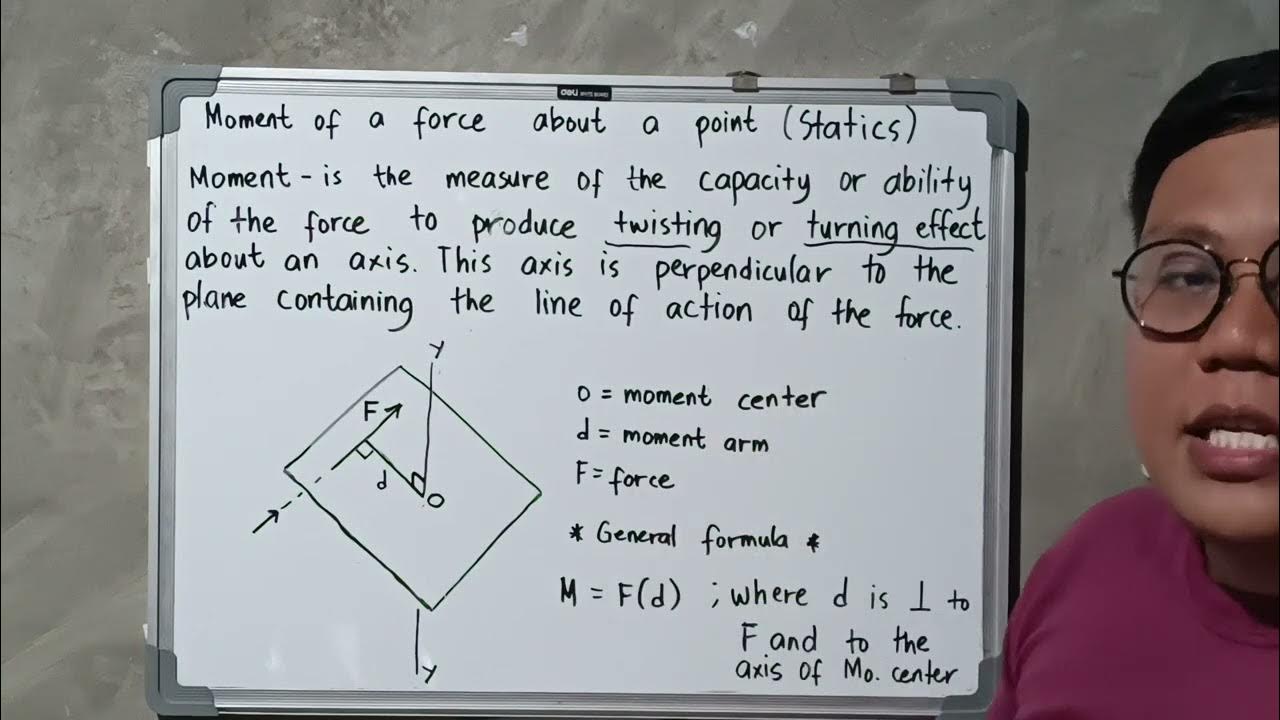 deli WHITE BOARD
Moment of a force about a point (Statics)
Moment - is the measure of the capacity or ability
of the force to produce twisting or turning effect
about an axis. This axis is perpendicular to the
plane containing the line of action of the force.
y
F
d
O
y
O = moment center
d = moment arm
F = force
* General formula *
M = F(d) ; where d is ⊥ to
F and to the
axis of Mo. center